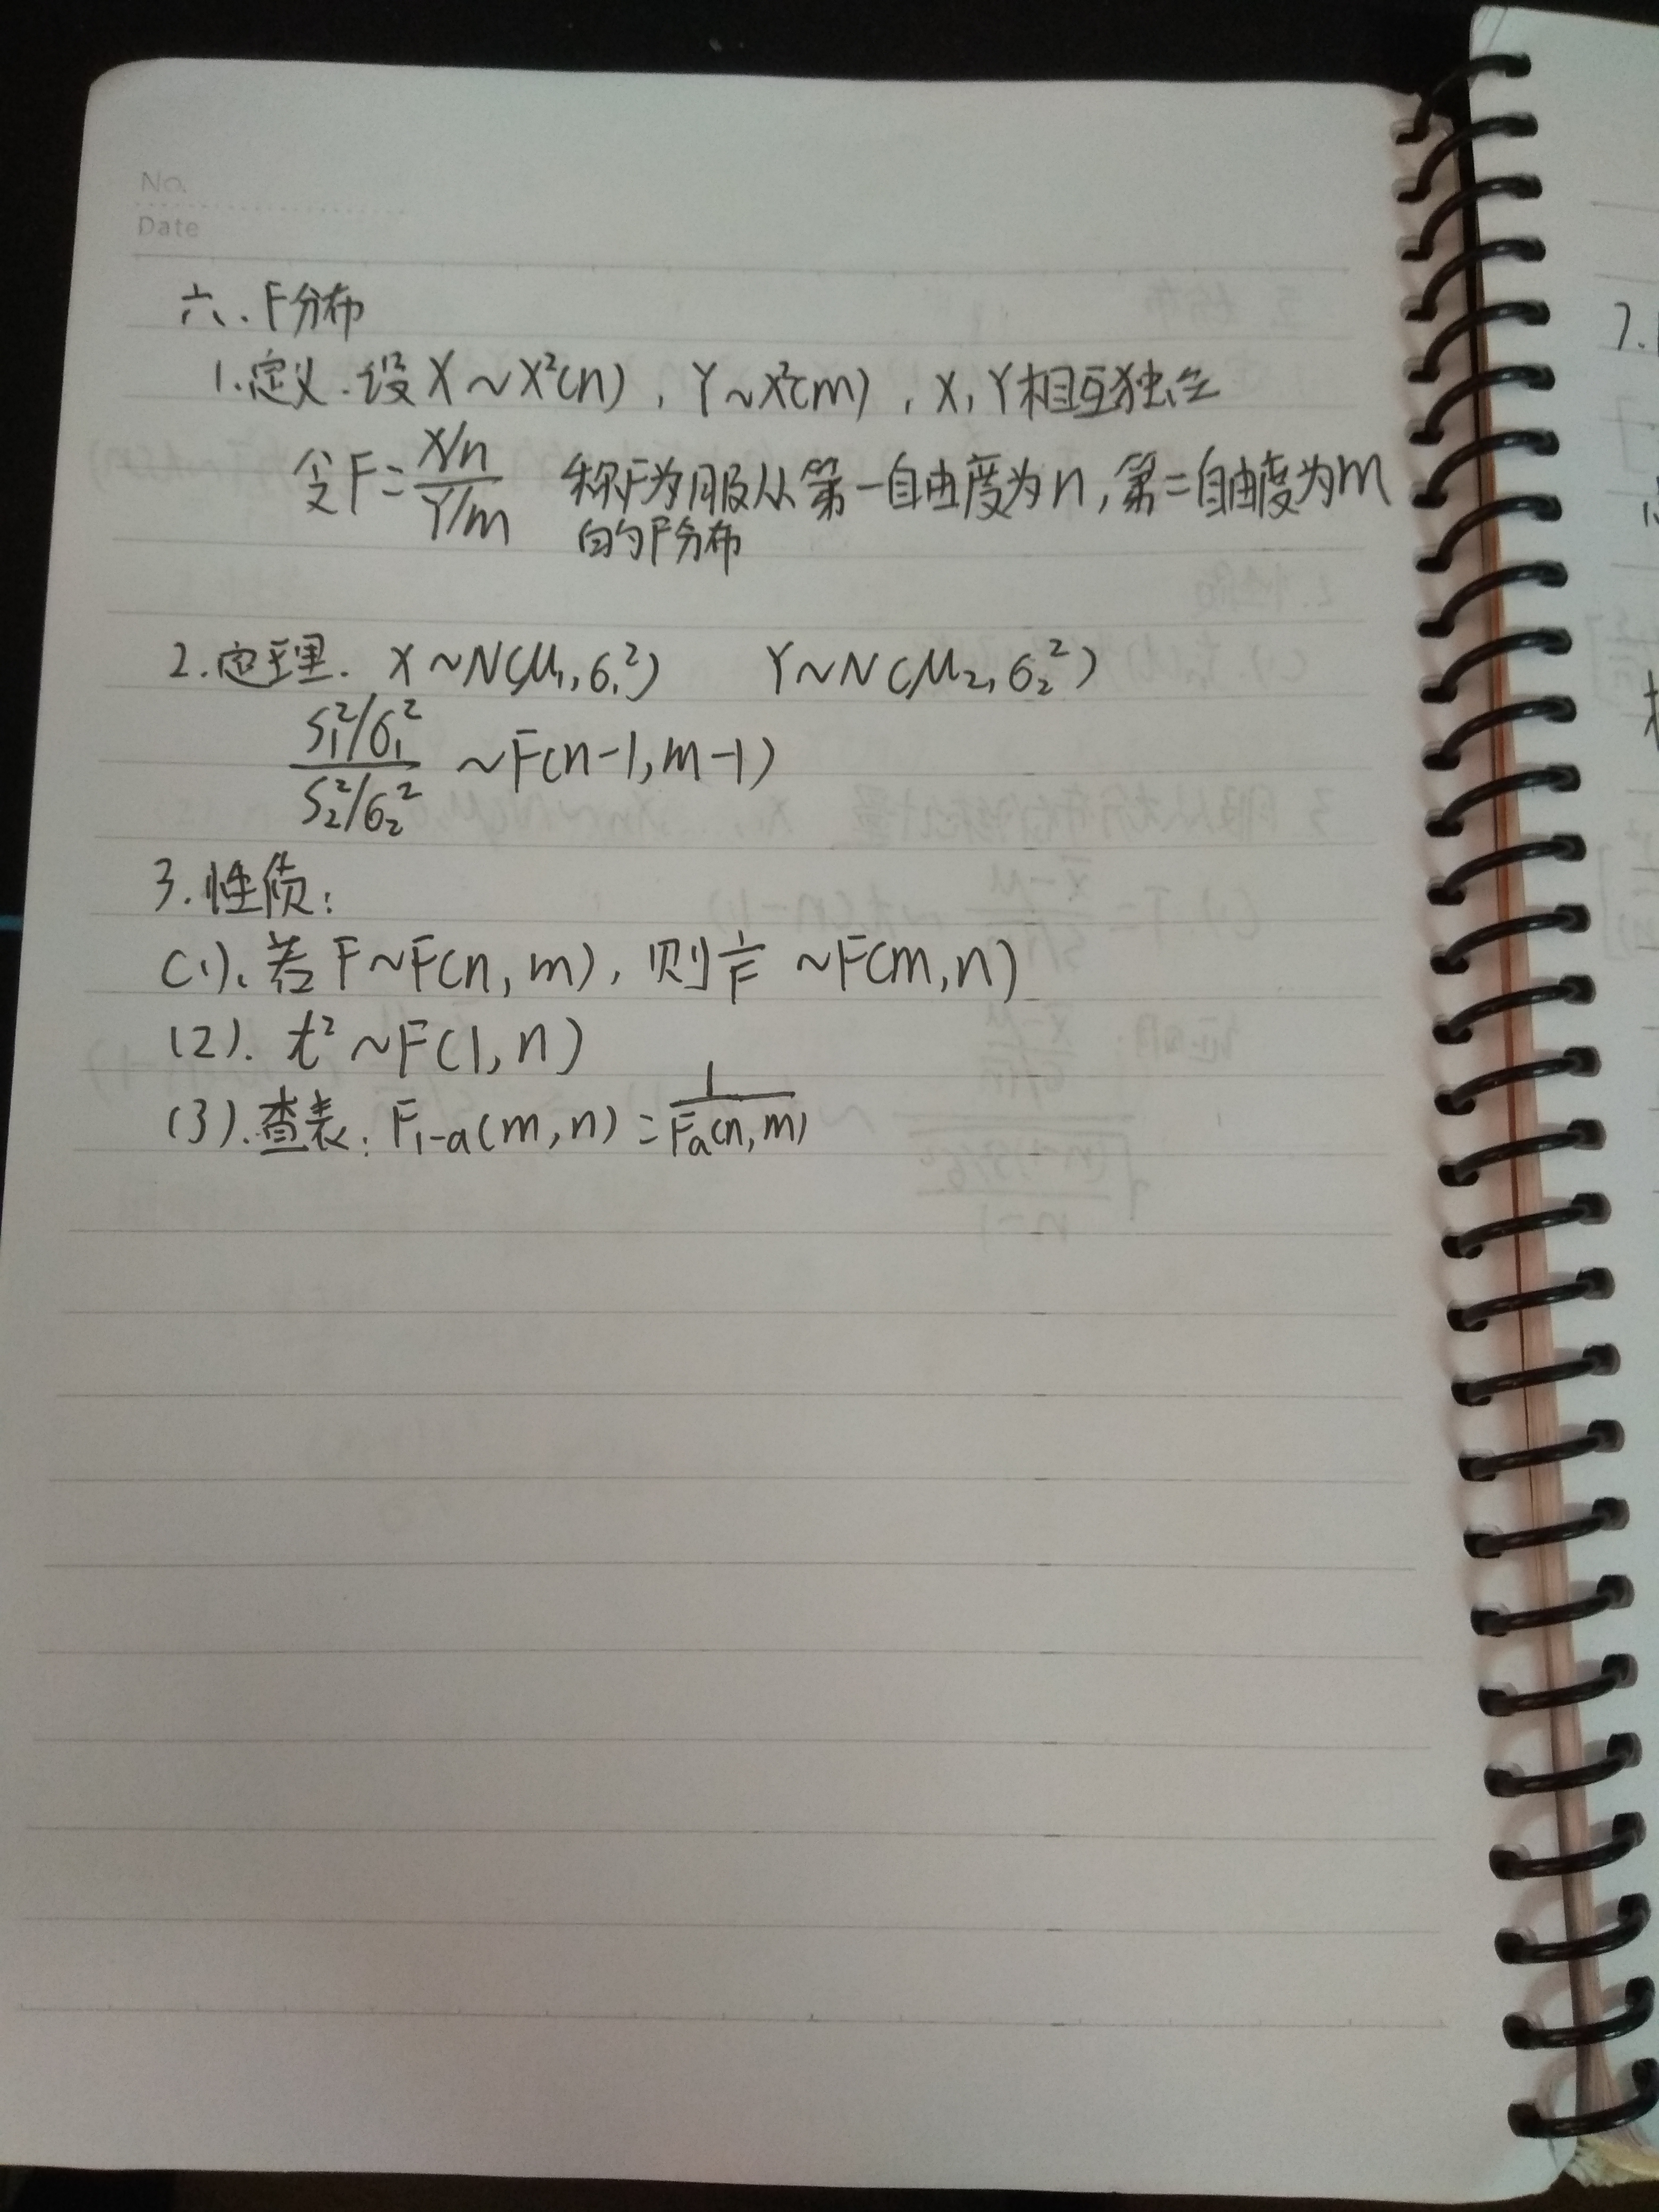 No.
Date
六、F分布
1.定义.设X~X²(n),Y~X²(m),X,Y相互独立
令F=X/n / Y/m 称F为服从第一自由度为n,第二自由度为m
的F分布
2.定理. X~N(μ₁,σ₁²) Y~N(μ₂,σ₂²)
S₁²/σ₁² / S₂²/σ₂² ~F(n-1,m-1)
3.性质:
(1).若F~F(n,m),则1/F ~F(m,n)
(2). t²~F(1,n)
(3).查表:F₁₋ₐ(m,n)=1/Fₐ(n,m)
7.